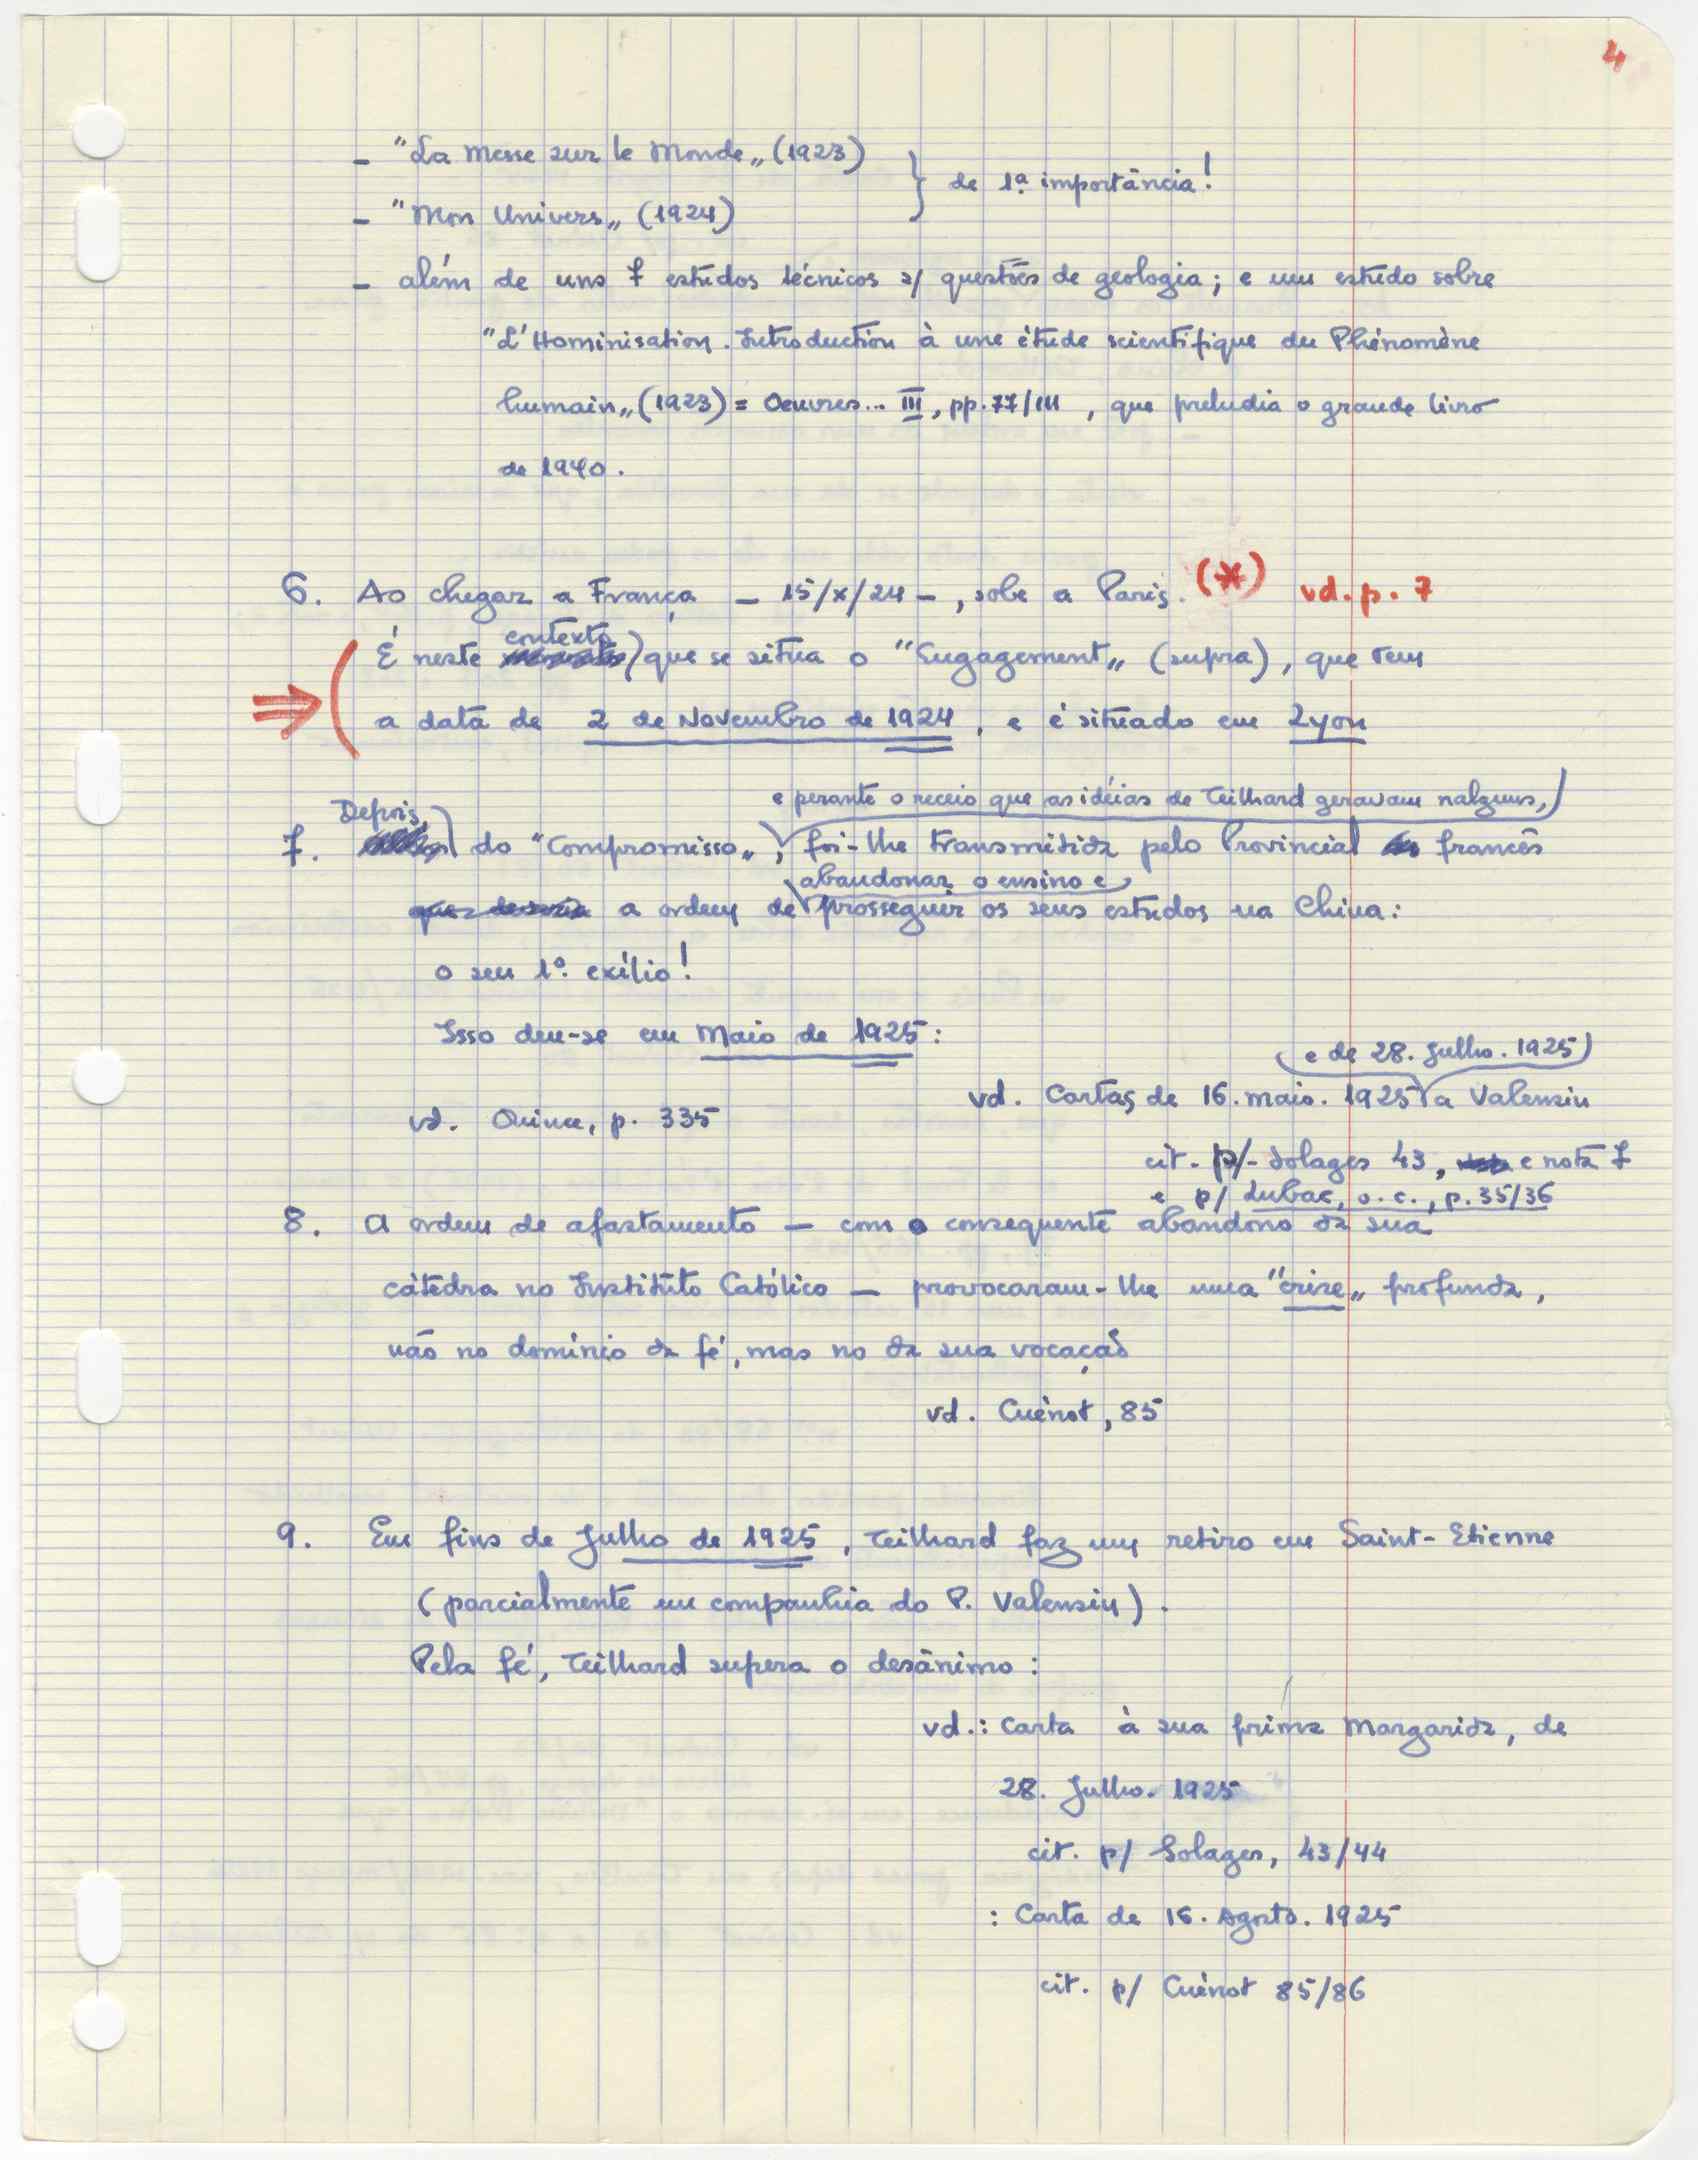 4
- "La Messe sur le Monde„ (1923)
de 1ª importância!
- "Mon Univers„ (1924)
- além de uns 7 estudos técnicos s/ questões de geologia; e um estudo sobre
"L'Hominisation. Introduction à une étude scientifique du Phénomène
humain„ (1923) = Oeuvres... III, pp. 77/111, que preludia o grande livro
de 1940.
6. Ao chegar a França - 15/X/24 -, sobe a Paris. (*) vd. p. 7
contexto
É neste que se situa o "Engagement„ (supra), que tem
a data de 2 de Novembro de 1924, e é situado em Lyon
e perante o receio que as idéias de Teilhard geravam nalguns,
Depois,
7. do "Compromisso„, foi-lhe transmitida pelo Provincial francês
abandonar o ensino e
a ordem de prosseguir os seus estudos na China:
o seu 1º. exílio!
Isso deu-se em Maio de 1925:
e de 28. Julho. 1925
vd. Cartas de 16. maio. 1925 a Valensin
vd. Ouince, p. 335
cit. p/ Solages 43, e nota 7
e p/ Lubac, o.c., p. 35/36
8. A ordem de afastamento - com o consequente abandono da sua
cátedra no Instituto Católico - provocaram-lhe uma "crise„ profunda,
não no domínio da fé, mas no da sua vocação
vd. Cuénot, 85
9. Em fins de Julho de 1925, Teilhard faz um retiro em Saint-Etienne
(parcialmente em companhia do P. Valensin).
Pela fé, Teilhard supera o desânimo:
vd.: Carta à sua prima Margarida, de
28. Julho. 1925
cit. p/ Solages, 43/44
: Carta de 16. Agosto. 1925
cit. p/ Cuénot 85/86